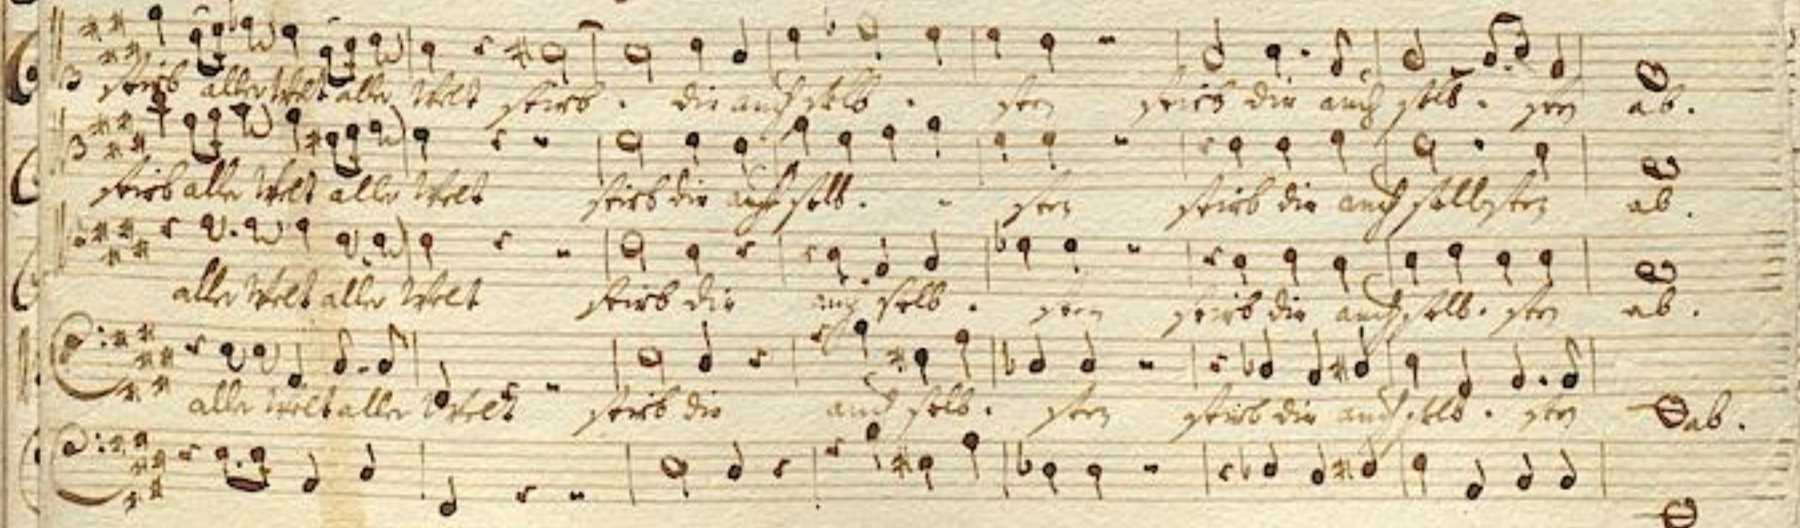 stirb alle Welt alle Welt stirb. dir auch selb. sten stirb dir auch selb. sten ab.
stirb alle Welt alle Welt stirb dir auch selb. - sten stirb dir auch selbsten ab.
alle Welt alle Welt stirb dir auch selb. sten stirb dir auch selb. sten ab.
alle Welt alle Welt stirb dir auch selb. sten stirb dir auch selb. sten ab.